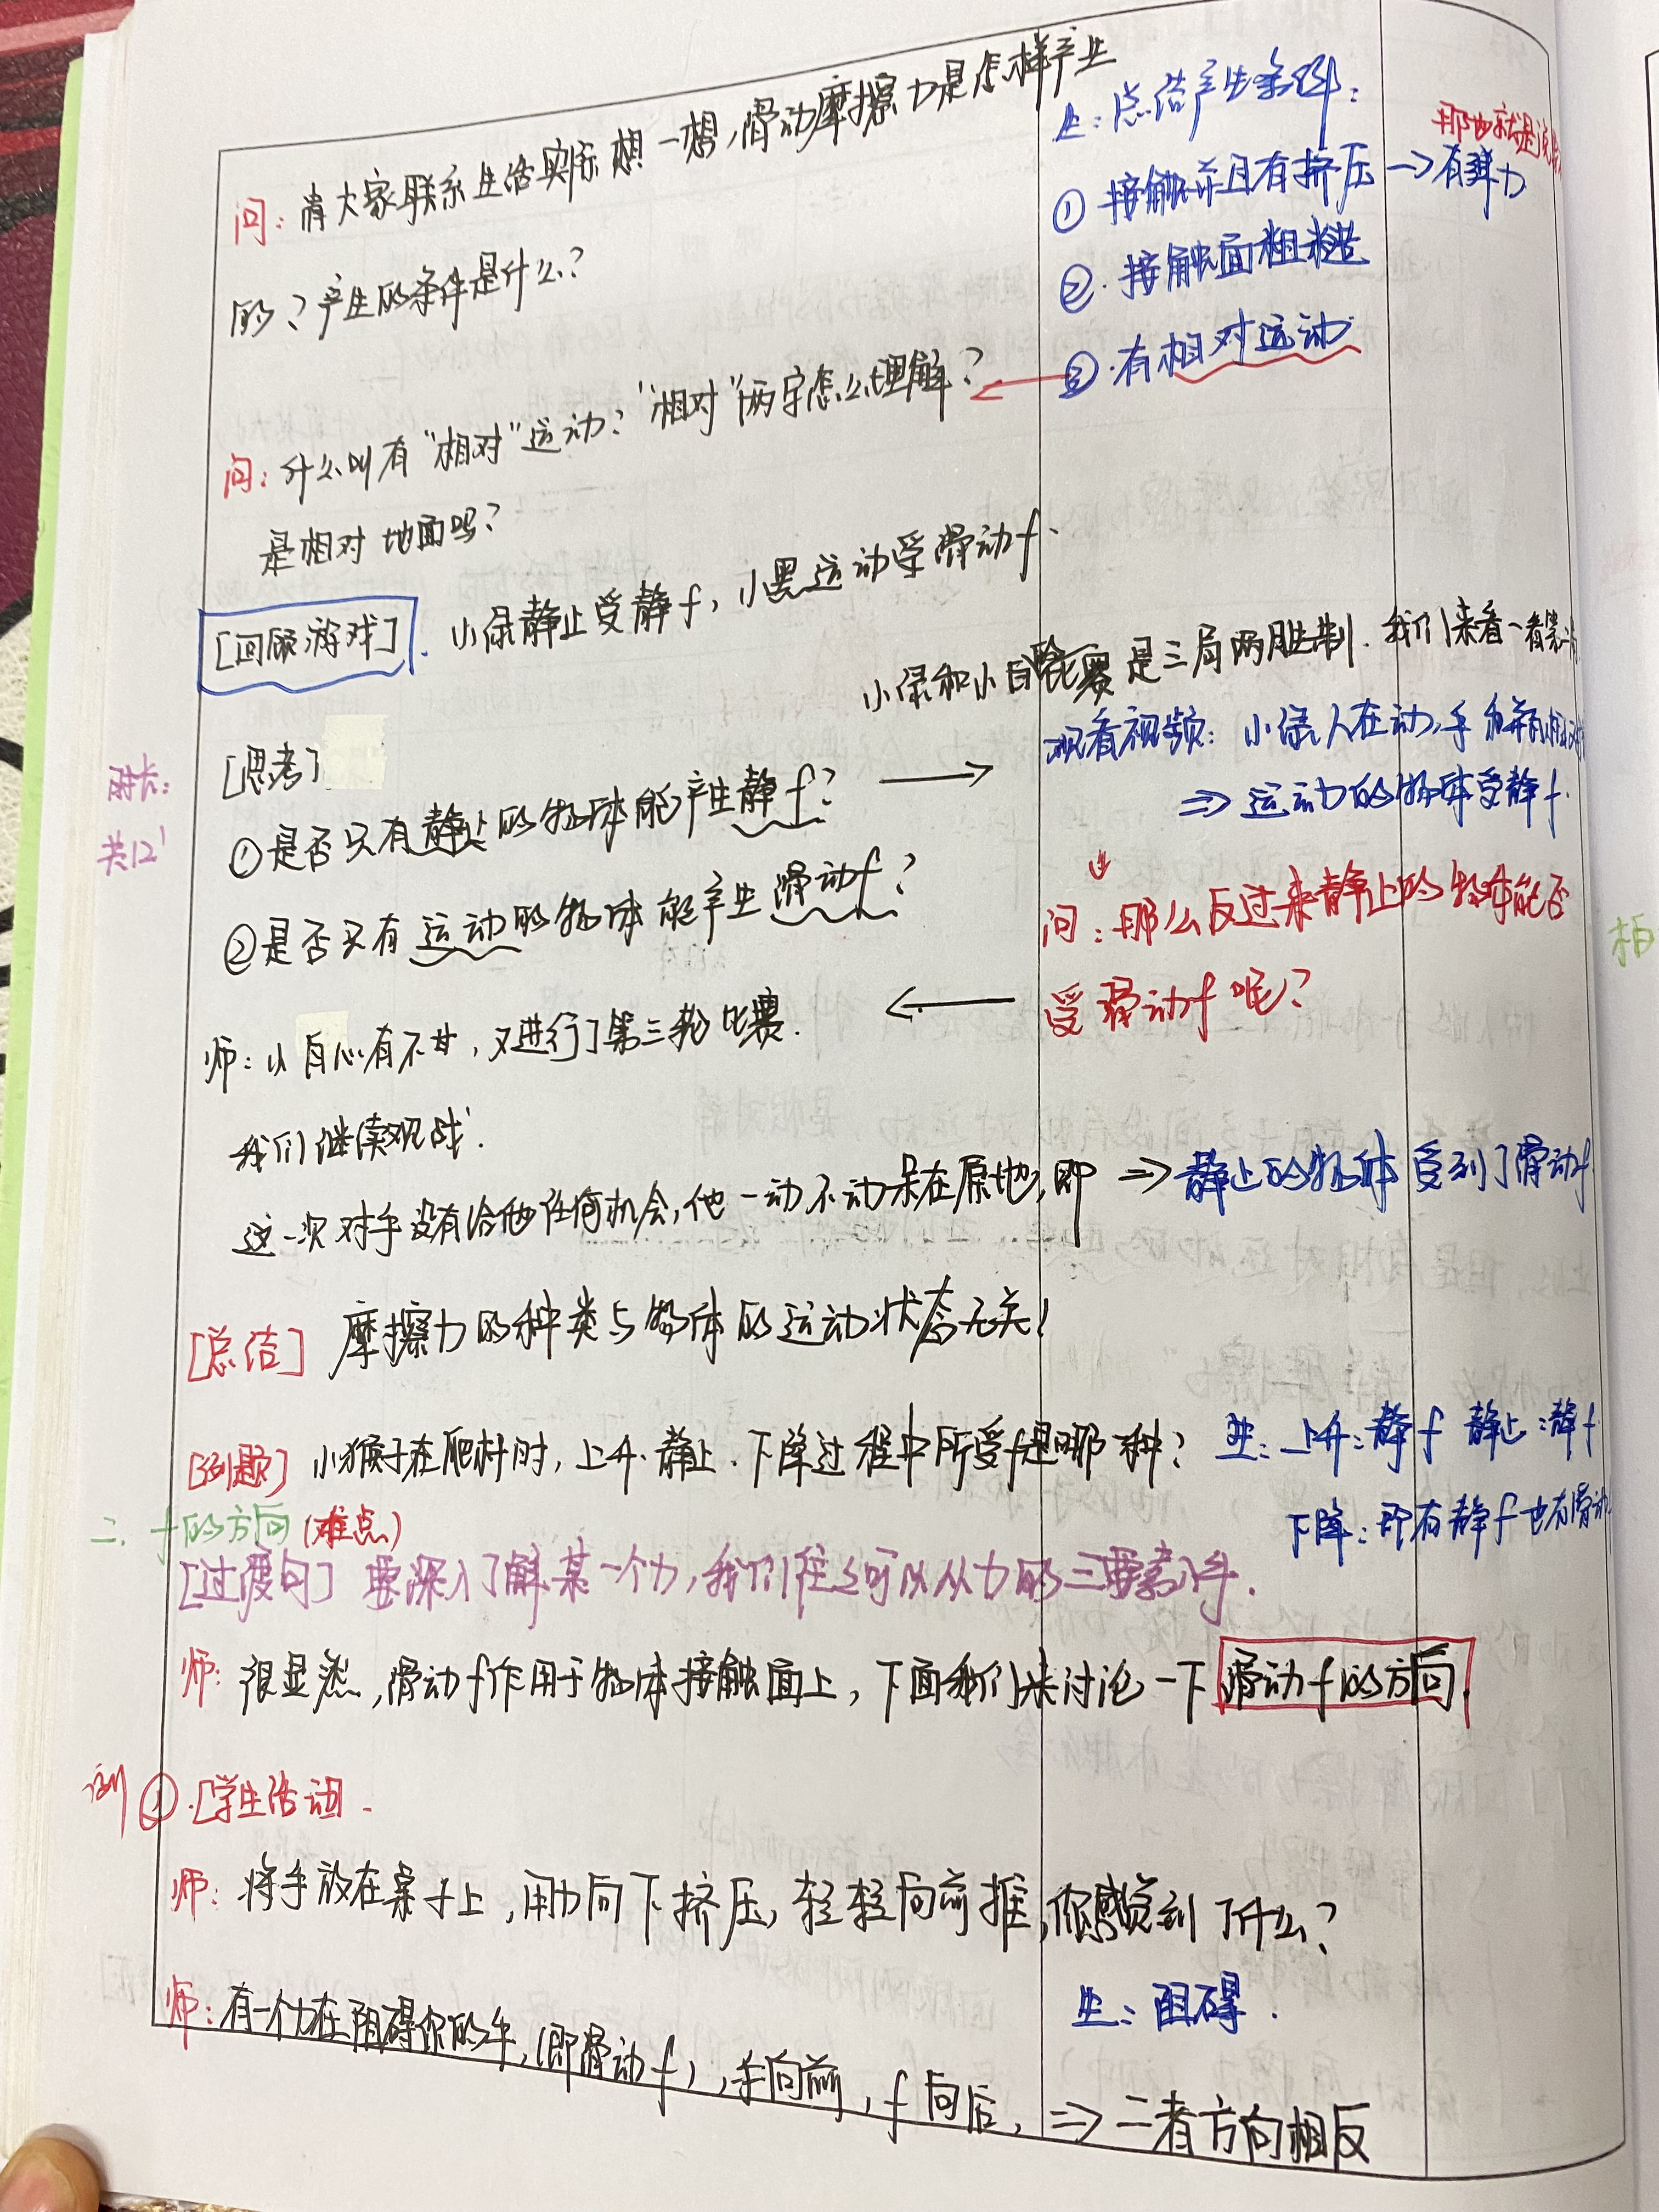 问：请大家联系生活实际想一想，滑动摩擦力是怎样产生
的？产生的条件是什么？
生：总结产生条件：
①接触并且有挤压→有弹力
那也就是说
②.接触面粗糙
③.有相对运动
问：什么叫有“相对”运动？“相对”两字怎么理解？
是相对地面吗？
[回顾游戏].小绿静止受静f，小黑运动受滑动f.
小绿和小白的比赛是三局两胜制.我们来看一看第二
[思考]
观看视频：小绿人在动，手和
⇒运动的物体受静f.
时长：
共12'
①是否只有静止的物体能产生静f？
②是否只有运动的物体能产生滑动f？
问：那么反过来静止的物体能否
受滑动f呢？
师：小白心有不甘，又进行了第三轮比赛.
我们继续观战.
这一次对手没有给他任何机会，他一动不动呆在原地，即⇒静止的物体受到了滑动f
[总结] 摩擦力的种类与物体的运动状态无关！
[例题] 小猴子在爬树时，上升.静止.下降过程中所受f是哪种？
生：上升：静f 静止：静f
下降：即有静f也有滑动
二.f的方向(难点)
[过渡句] 要深入了解某一个力，我们往往可以从力的三要素入手.
师：很显然，滑动f作用于物体接触面上，下面我们来讨论一下滑动f的方向.
例①.[学生活动].
师：将手放在桌子上，用力向下挤压，轻轻向前推，你感觉到了什么？
生：阻碍.
师：有一个力在阻碍你的手，(即滑动f)，手向前，f向后，⇒二者方向相反